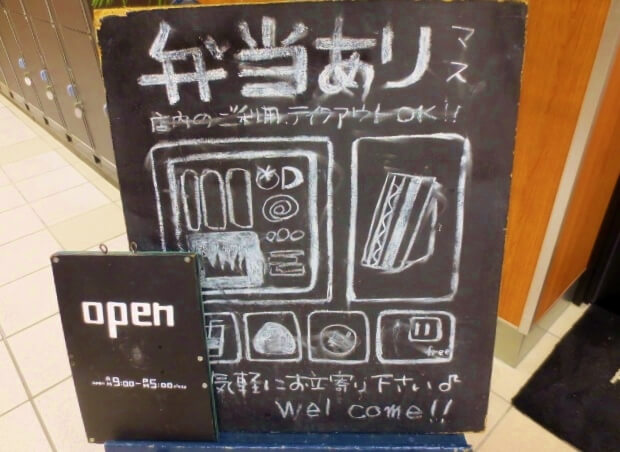 弁当あり
マス
店内のご利用、テイクアウトOK!!
open
OPEN AM 9:00-PM 5:00
free
気軽にお立寄り下さい♪
Wel come!!